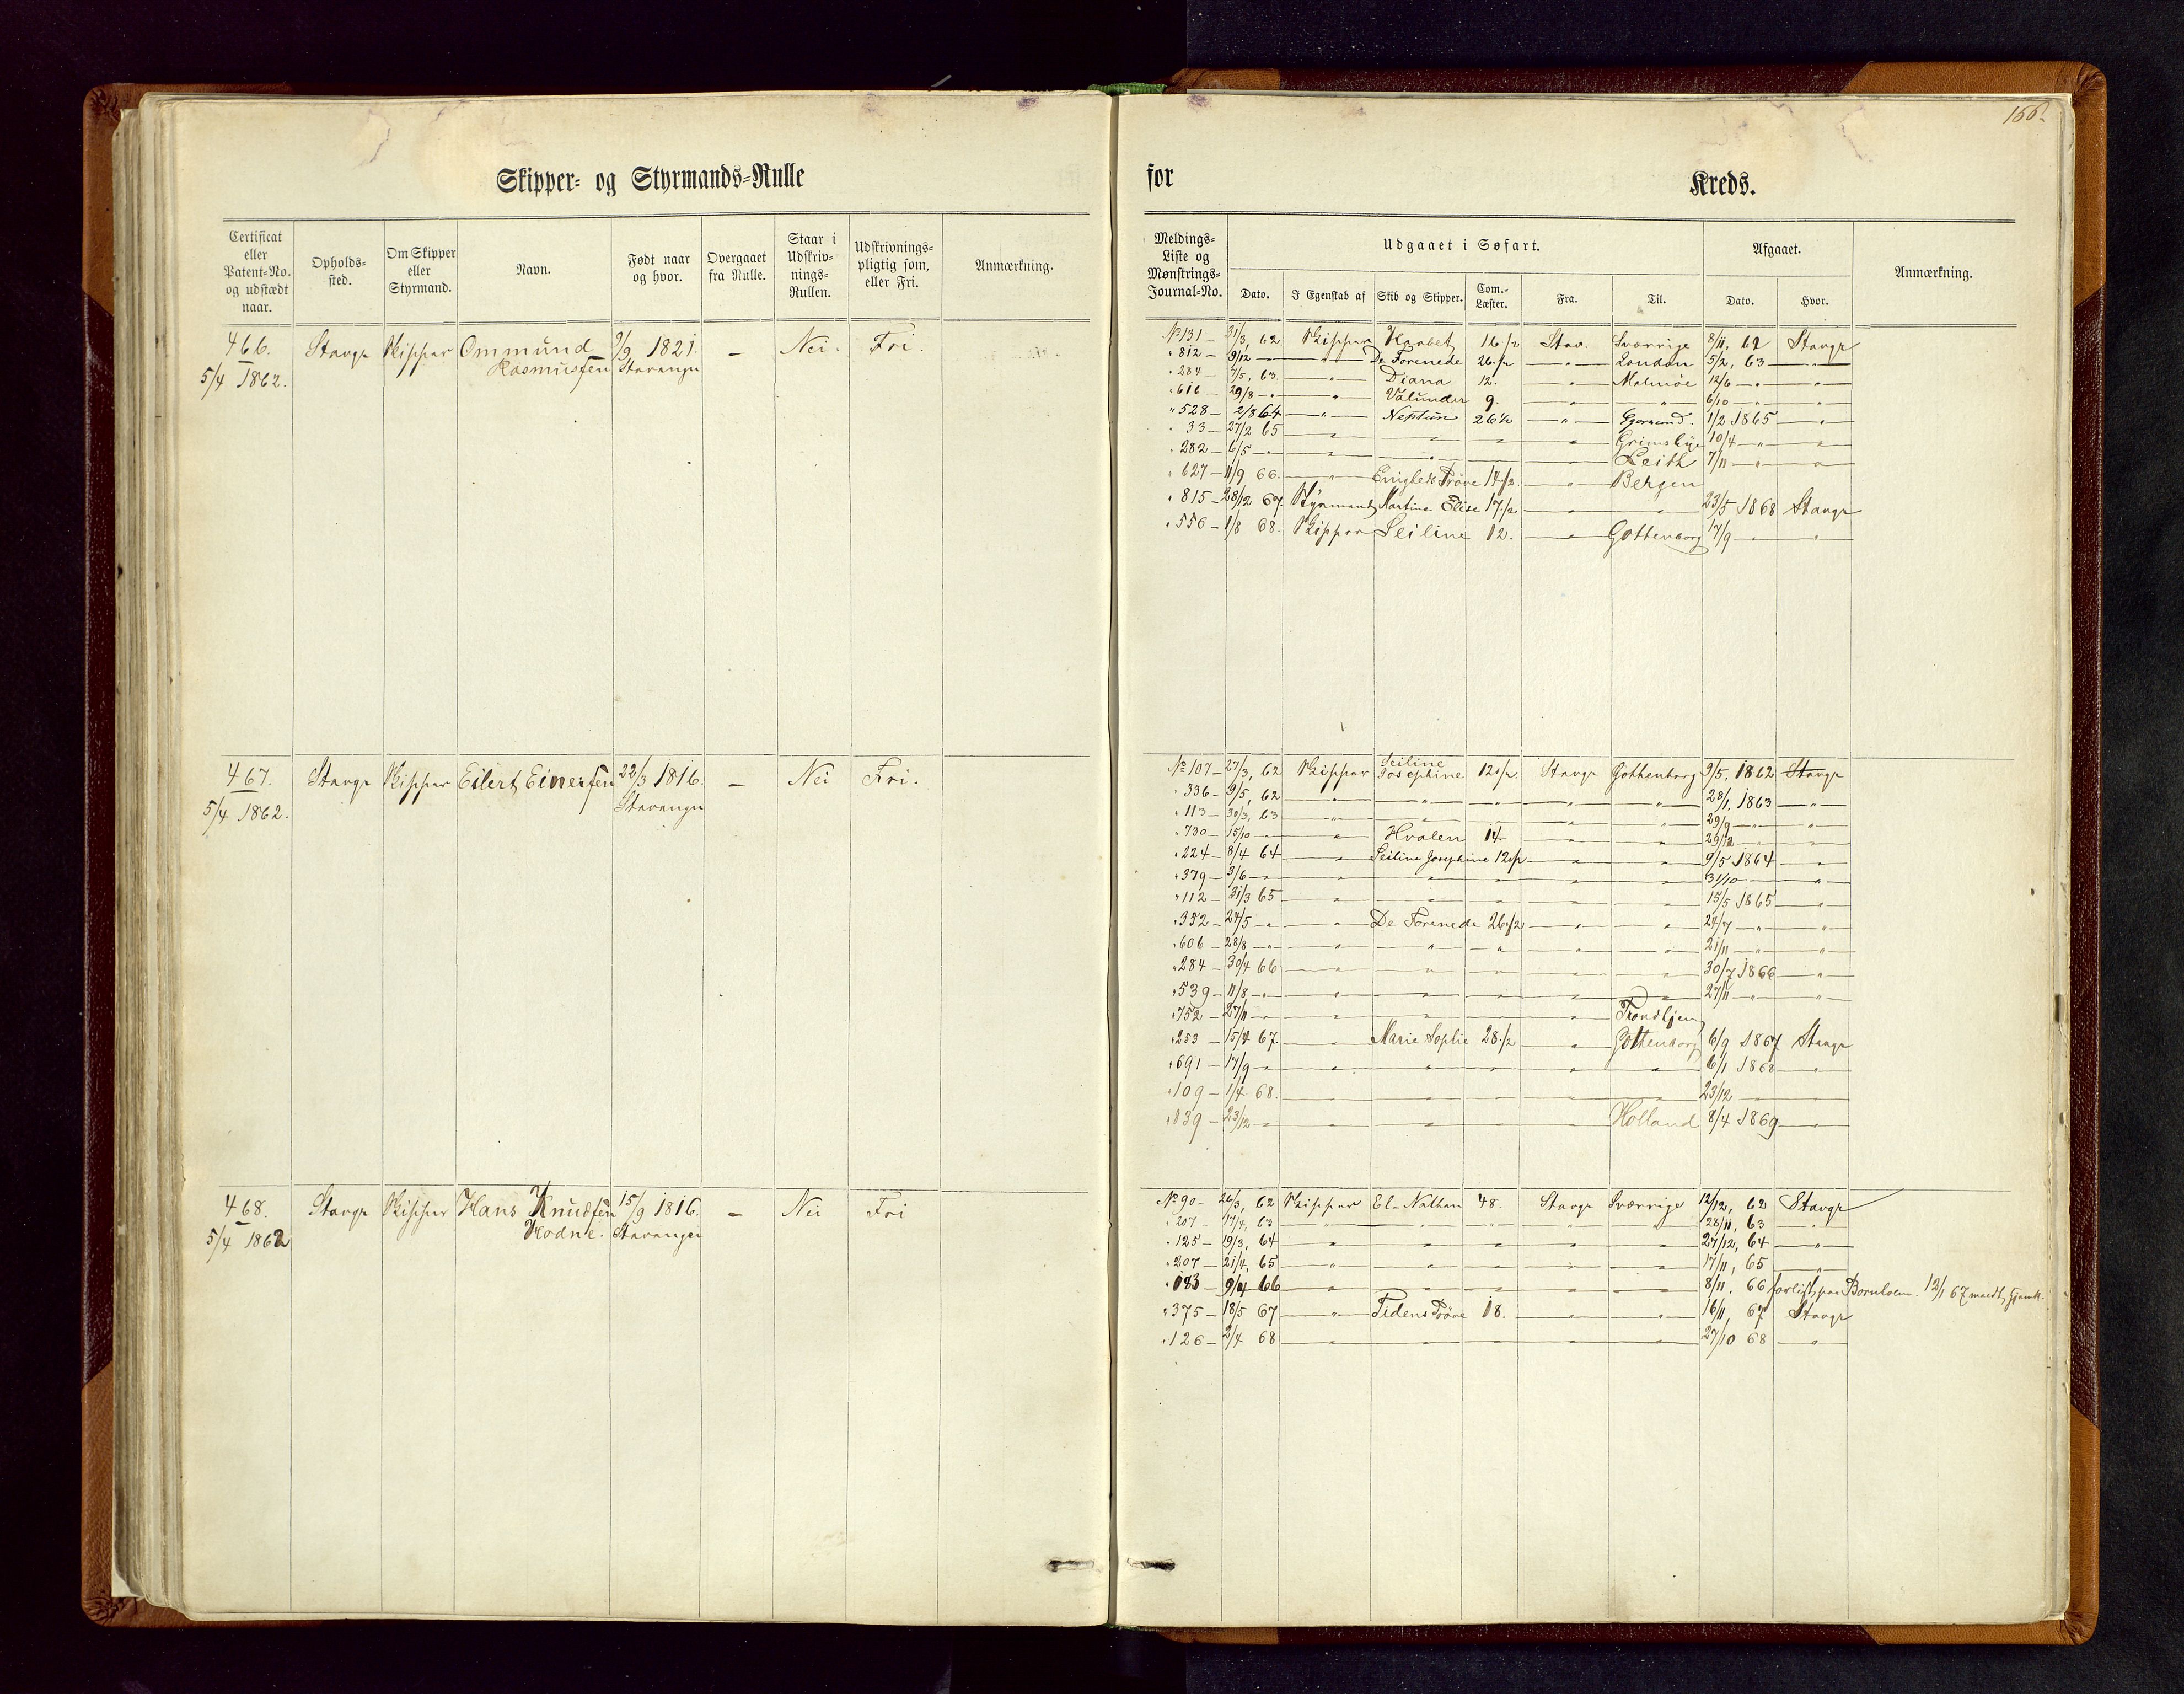 156.
Skipper- og Styrmands-Rulle
for
Kreds.
Certificat eller Patent-No. og udstædt naar.
Opholds-sted.
Om Skipper eller Styrmand.
Navn.
Født naar og hvor.
Overgaaet fra Rulle.
Staar i Udskriv-nings-Rullen.
Udskrivnings-pligtig som, eller Fri.
Anmærkning.
Meldings-Liste og Mønstrings-Journal-No.
Udgaaet i Søfart.
Afgaaet.
Anmærkning.
Dato.
I Egenskab af
Skib og Skipper.
Com.-Læster.
Fra.
Til.
Dato.
Hvor.
466. Stavgr Skipper Ommund 9/9 1821. – Nei. Fri.
5/4 1862. Rasmussen Stavanger
No 131 – 31/3, 62 Skipper Haabet 16 1/2 Stav. Sverrige 8/11, 62 Stavgr
" 812 – 9/12 – " De Forenede 26 1/2 – " – London 5/2, 63 – " –
" 284 – 7/5, 63. – " – Diana 12. " Malmöe 12/6 – " – "
" 616 – 29/8 – " – " Valunder 9. " " 6/10 – " – "
" 528 – 2/8 64 – " – Neptun 26 1/2 – " – Egersund. 1/2 1865 – "
" 33 – 27/2 65 – " – " – " – " Grimsbye 10/4 – " – "
" 282 – 6/5 – " – " – " – Leith 7/11 – " – "
" 627 – 11/9 66. – " – Enighets Prøve 17 1/2. – " – Bergen
" 815 – 28/12 67. Styrmand Martine Elise 17 1/2 – " – " 23/5 1868 Stavgr
" 556 – 1/8 68. Skipper Seiline 12. – " – Gottenborg 17/9 – " – "
467. Stavgr Skipper Eilert Einersen 22/3 1816. – Nei Fri.
5/4 1862. Stavanger
No 107 – 27/3, 62 Skipper Seiline Josephine 12 1/2. Stavgr Gothenborg 9/5, 1862 Stavgr
" 336 – 9/5, 62 – " – " – " – " – " 28/1, 1863 – " –
" 113 – 30/3, 63 – " – " – " – " – " 29/9 – " – "
" 730 – 15/10 – " – " Hvalen 14 – " – " 29/12 – " – "
" 224 – 8/4 64 – " – Seiline Josephine 12 1/2 – " – " 9/5 1864 – "
" 379 – 3/6 – " – " – " – " – " – " 31/10 – " – "
" 112 – 31/3 65 – " – " – " – " – " 15/5 1865 – "
" 352 – 24/5 – " – " De Forenede 26 1/2 – " – " 24/7 – " – "
" 606 – 28/8 – " – " – " – " – " – " 21/11 – " – "
" 284 – 30/4 66 – " – " – " – " – " 30/7 1866 – "
" 539 – 11/8 – " – " – " – " – " – " 27/11 – " – "
" 752 – 27/11 – " – " – " – " – " Trondhjem
" 253 – 15/4 67. – " Marie Sophie 28 1/2 – " – Gottenborg 6/9 1867 Stavgr
" 691 – 17/9 – " – " – " – " – " – " 6/1 1868 – "
" 109 – 1/4 68. – " – " – " – " – " 23/12 – " – "
" 839 – 23/12 – " – " – " – " – " Holland 8/4 1869 – "
468. Stavgr Skipper Hans Knudsen 15/9 1816. – Nei Fri
5/4 1862 Hodne. Stavanger
No 90 – 26/3, 62 Skipper El-Nathan 48. Stavgr Sverrige 12/12, 62 Stavgr
" 207 – 17/4, 63 – " – " – " – " – " 28/11, 63 – "
" 125 – 19/3, 64 – " – " – " – " – " 27/12, 64 – "
" 207 – 21/4, 65 – " – " – " – " – " 17/11, 65 – "
" 183 – 9/4 66 – " – " – " – " – " 8/11, 66 forlist paa Bornholm. 12/1 67 meldt hjemk.
" 375 – 18/5 67 – " – Tidens Prøve 18. – " – " 16/11, 67 Stavgr
" 126 – 2/4 68 – " – " – " – " – " 27/10 68 – "